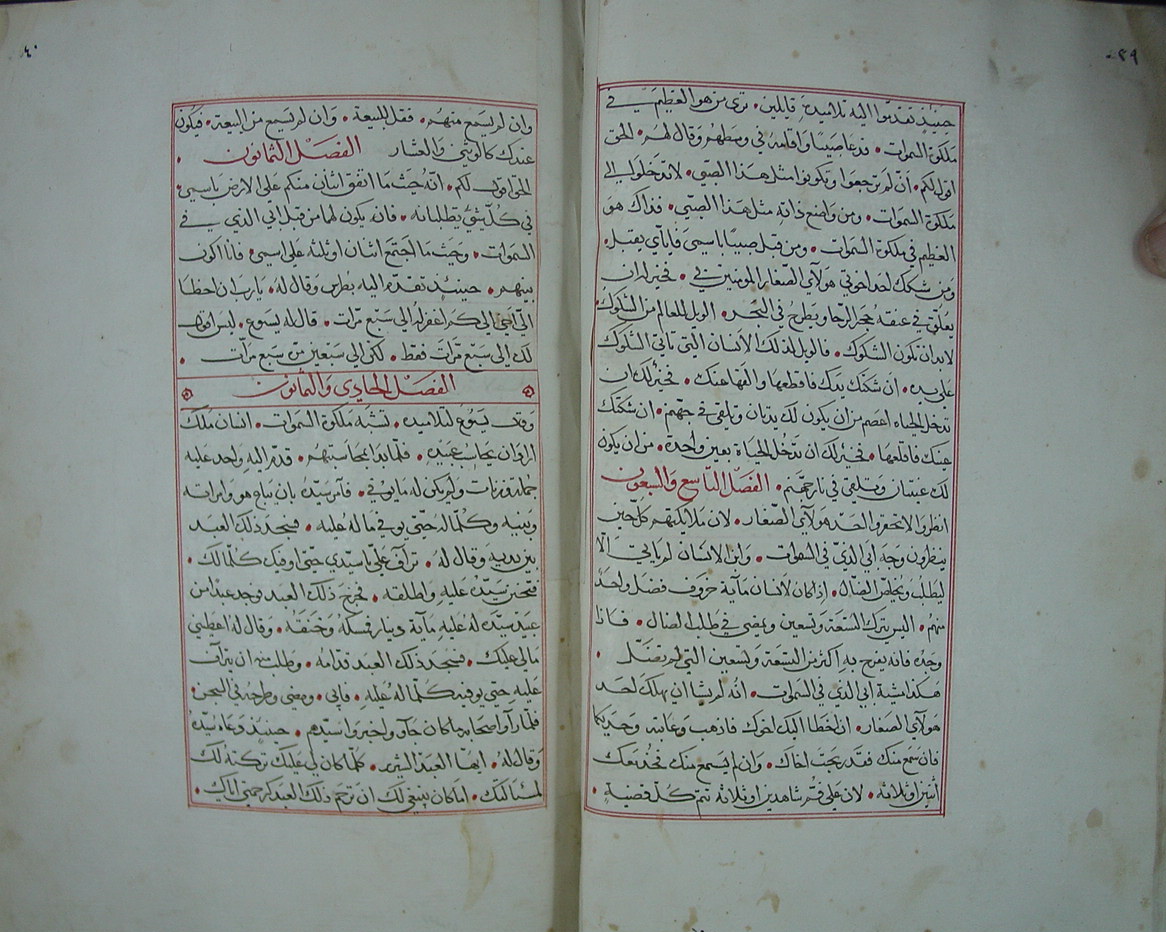 ٥٩
حينيذ تقدموا اليه تلاميذه قايلين • ترى من هو العظيم في
ملكوة السموات • فدعا صبيًا واقامه في وسطهم وقال لهم • الحق
اقول لكم • ان لم ترجعوا وتكونوا مثل هذا الصبي • لا تدخلوا الى
ملكوة السموات • ومن واضع ذاته مثل هذا الصبي • فذاك هو
العظيم في ملكوة السموات • ومن قبل صبيًا باسمي فاياي يقبل •
ومن شكك احد اخوتي هولاي الصغار المومنين بي • فخير له ان
يعلق في عنقه حجر الرحا ويطرح في البحر • الويل للعالم من الشكوك •
لابد ان تكون الشكوك • فالويل لذلك الانسان التي تاتي الشكوك
على يده • ان شككتك يدك فاقطعها والقها عنك • فخير لك ان
تدخل الحياه اعصم من ان يكون لك يدان وتلقى في جهنم • ان شككتك
عينك فاقلعها • فخير لك ان تدخل الحياة بعين واحدة • من ان يكون
لك عينتان وتلقى في نار جهنم • الفصل التاسع والسبعون
انظروا لا تحقروا احد هولاي الصغار • لان ملايكتهم كل حين
ينظرون وجه ابي الذي في السموات • وابن الانسان لم ياتي الا
ليطلب ويخلص الضال • اذا كان لانسان ماية خروف فضل واحد
منهم • اليس يترك التسعة وتسعين ويمضي في طلب الضال • فاذا
وجده فانه يفرح به اكثر من التسعة وتسعين التي لم تضل •
هكذا مشية ابي الذي في السموات • انه لم يشا ان يهلك احد
هولاي الصغار • ان اخطا اليك اخوك فاذهب وعاتبه وحديكما
فان سمع منك فقد ربحت اخاك • وان لم يسمع منك فخذ معك
اثنين او ثلاثه • لان على فم شاهدين او ثلاثه تتم كل قضية •
٦٠
وان لم يسمع منهم • فقل للبيعة • وان لم يسمع من البيعة • فيكون
عندك كالوثني والعشار الفصل الثمانون •
الحق اقول لكم • انه حيث ما اتفق اثنان منكم على الارض باسمي •
في كل شي يطلبانه • فان يكون لهما من قبل ابي الذي في
السموات • وحيث ما اجتمع اثنان او ثلثه على اسمي • فانا اكون
بينهم • حينيذ تقدم اليه بطرس وقال له • يا رب ان اخطا
الي اخي الى كم اغفر له الى سبع مرات • قال له يسوع • ليس اقول
لك الى سبع مرات فقط • لكن الى سبعين مرة سبع مرات •
الفصل الحادي والثمانون
وقال يسوع لتلاميذه • تشبه ملكوة السموات • انسان ملك
اراد ان يحاسب عبيده • فلما بدا بمحاسبتهم • قدم اليه واحد عليه
جملة وزنات • ولم يكن له ما يوفي • فامر سيده بان يباع هو وامراته
وبنيه وكلما له حتى يوفي ماله عليه • فسجد ذلك العبد
بين يديه وقال له • تراف علي يا سيدي حتى اوفيك كلما لك •
فتحنن سيده عليه واطلقه • فخرج ذلك العبد فوجد عبدا من
عبيد سيده له عليه ماية دينار فمسكه وخنقه • وقال له اعطيني
مالي عليك • فسجد ذلك العبد قدامه • وطلب منه ان يتراف
عليه حتى يوفيه كلما له عليه • فابى • ومضى وطرحه في السجن •
فلما راوا اصحابه ما كان جاو واخبروا سيدهم • حينيذ دعاه سيده
وقال له • ايها العبد الشرير • كلما كان لي عليك تركته لك
لمسالتك • اما كان ينبغي لك ان ترحم ذلك العبد كرحمتي اياك •